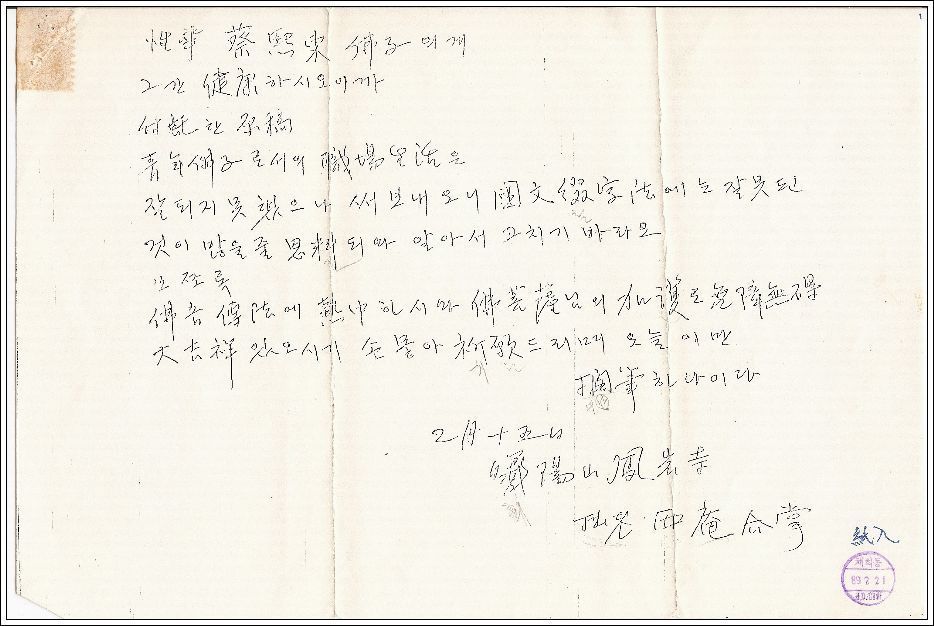 性華 蔡熙東 佛子 의게
그간 健康하시오이까
付託한 原稿
靑年佛子로서의 職場生活은
잘되지 못했으나 써보내오니 國文綴字法에는 잘못된
것이 많을줄 思料되와 알아서 고치기 바라오
모쪼록
佛音傳法에 熱中하시와 佛菩薩님의 加護로 無障無碍
大吉祥 있으시기 손몰아 祈願드리며 오늘 이만
擱筆하나이다
二月 十五日
曦陽山 鳳岩寺
拙老 西庵 合掌
紙入
1
89 2 21